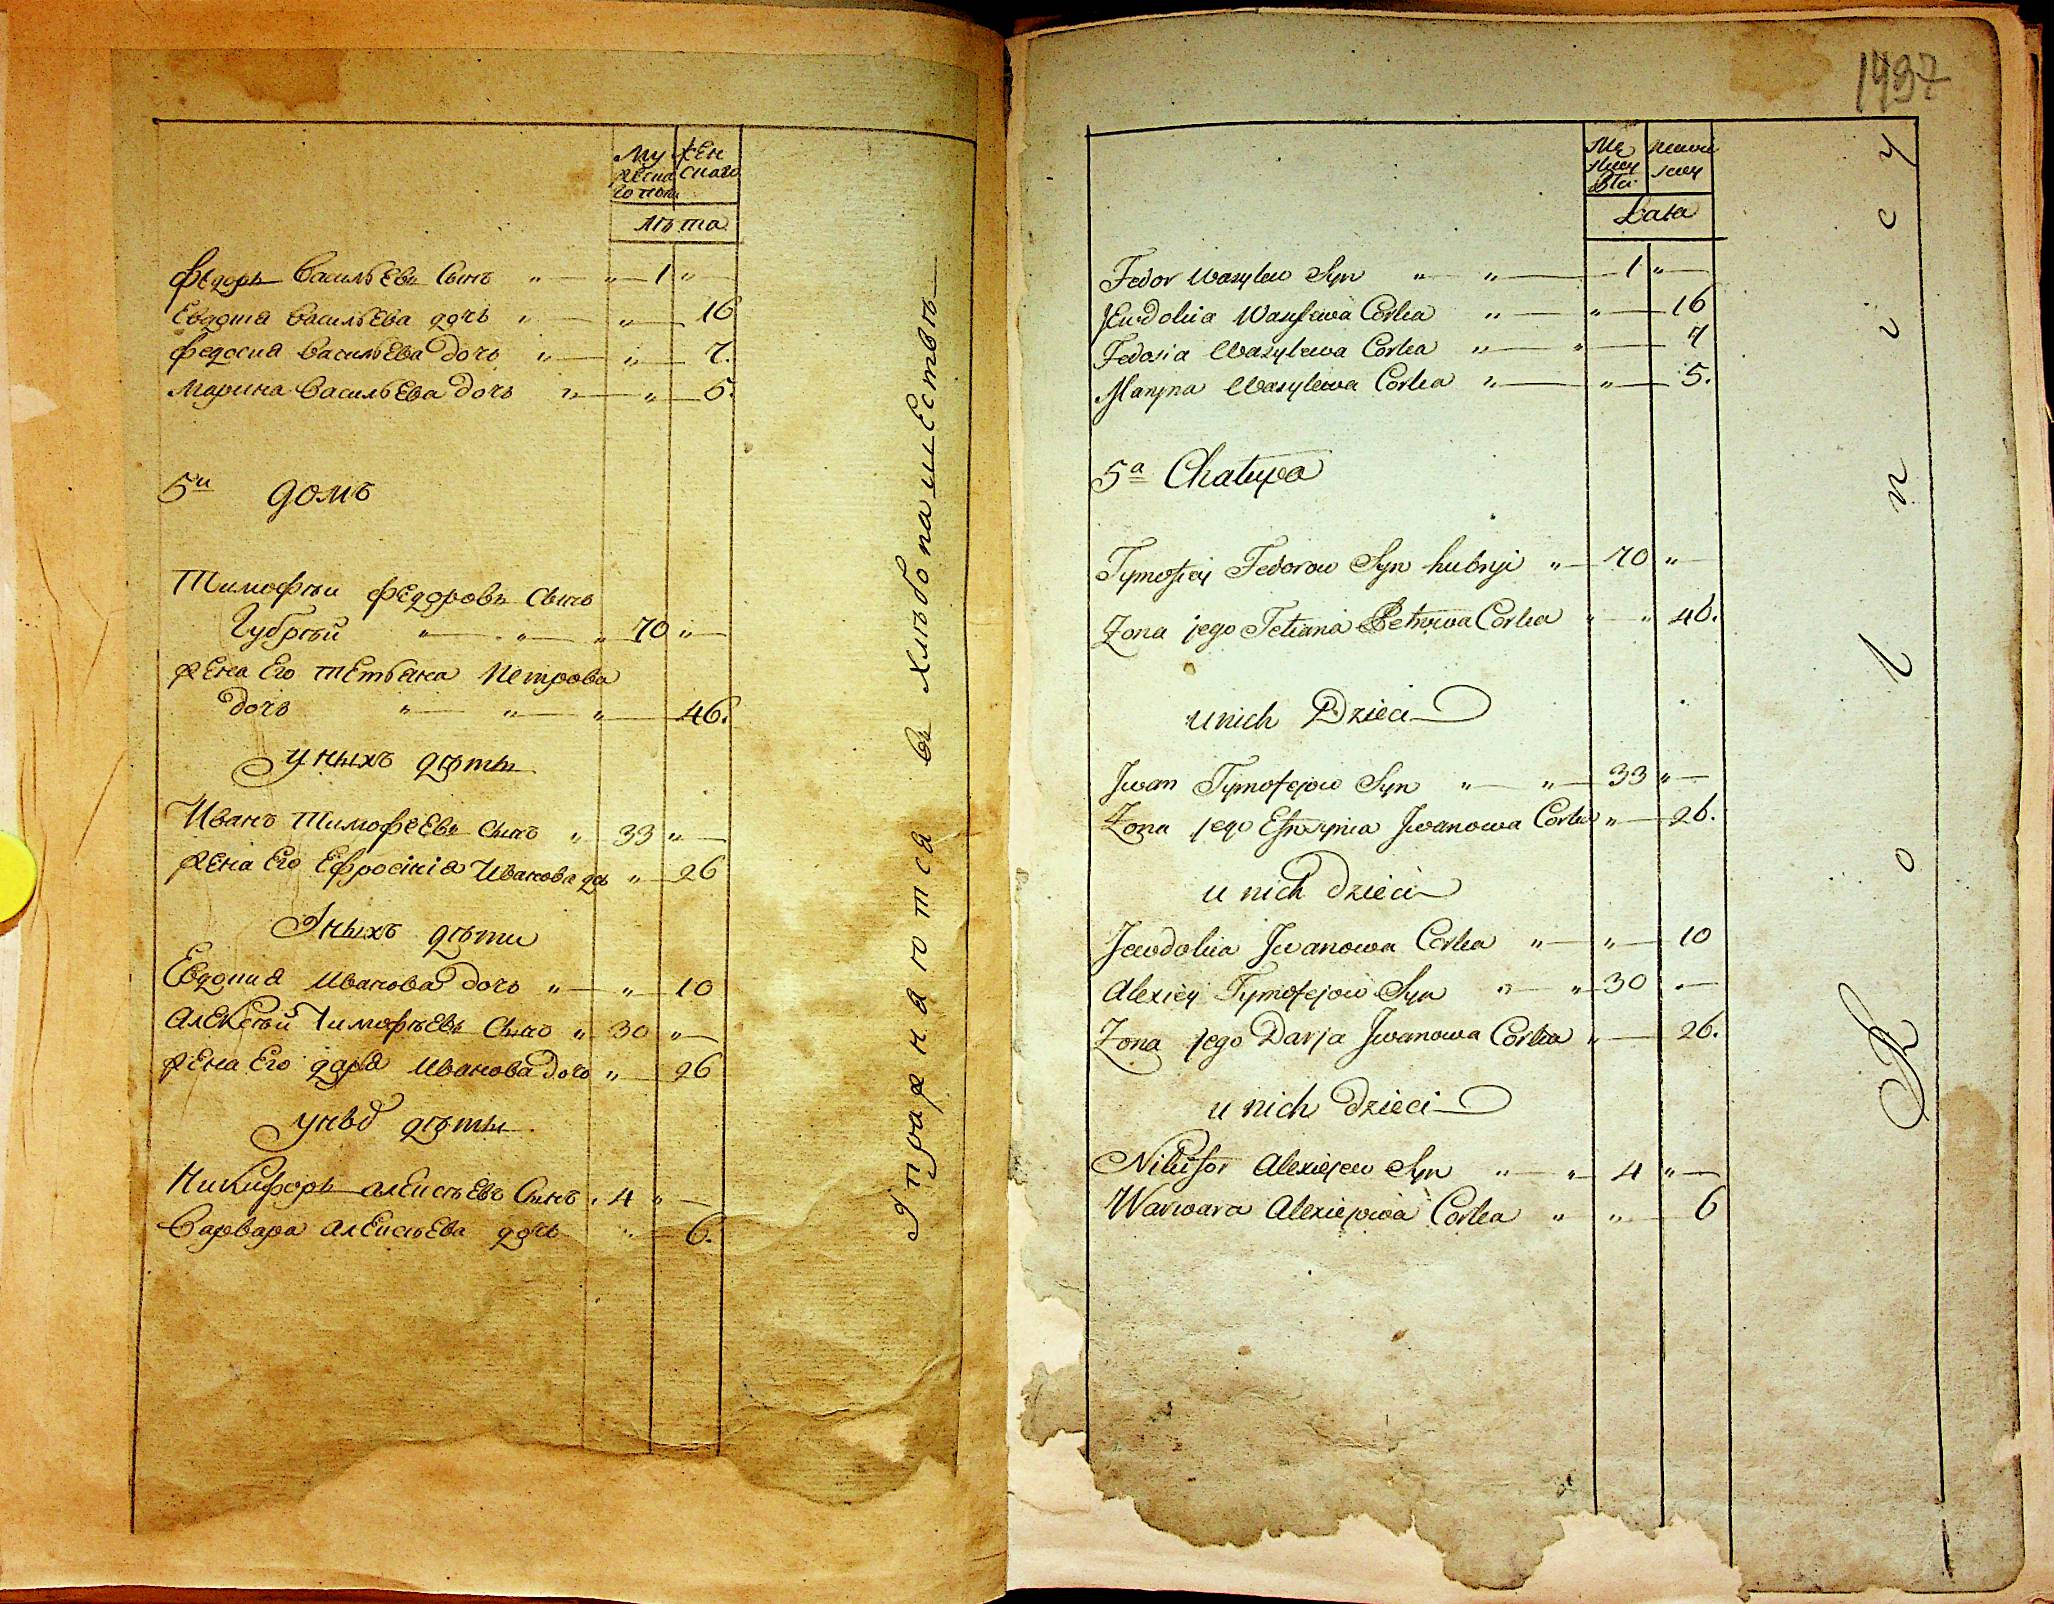 Му
жеска
го пола
жен
скаго
лѣта
Федоръ Васильевъ сынъ " " 1 "
Евдотиа Васильева дочь " " 16
Федосиа Васильева дочь " " 7.
Марина Васильева дочь " " 5.
5й домъ
Тимофѣй Федоровъ сынъ
Губрѣй " " " 70 "
жена Его Тетьяна Петрова
дочь " " " 46.
У ныхъ дѣти
Иванъ Тимофеевъ сынъ " 33 "
жена Его Ефросініа Иванова до " 26
У ныхъ дѣти
Евдокиа Иванова дочь " " 10
Алексѣй Тимофѣевъ сынъ " 30 "
жена Его даря Иванова дочь " 26
дѣти
Никифоръ алексѣевъ сынъ " 4 "
Варвара алексѣева дочь " 6.
Упражнаются въ хлѣбопашествѣ
1497
Mę
skiey
płci
żeńs
kiey
Lata
Fedor Wasylew Syn " " 1 "
Jewdokia Wasylewa Corka " " 16
Fedosia Wasylewa Corka " " 7
Maryna Wasylewa Corka " " 5.
5a Chałupa
Tymofiey Fedorow Syn hubryi " 70 "
Zona jego Tetiana Petrowa Corka " " 46.
u nich Dzieci
Jwan Tymofejow Syn " " 33 "
Zona jego Efrosynia Jwanowa Corka " 26.
u nich dzieci
Jewdokia Jwanowa Corka " " 10
Alexiey Tymofejow Syn " " 30 "
Zona jego Darja Jwanowa Corka " 26.
u nich dzieci
Nikifor Alexiejew Syn " " 4 "
Warwara Alexiejewa Corka " " 6
Rolnicy